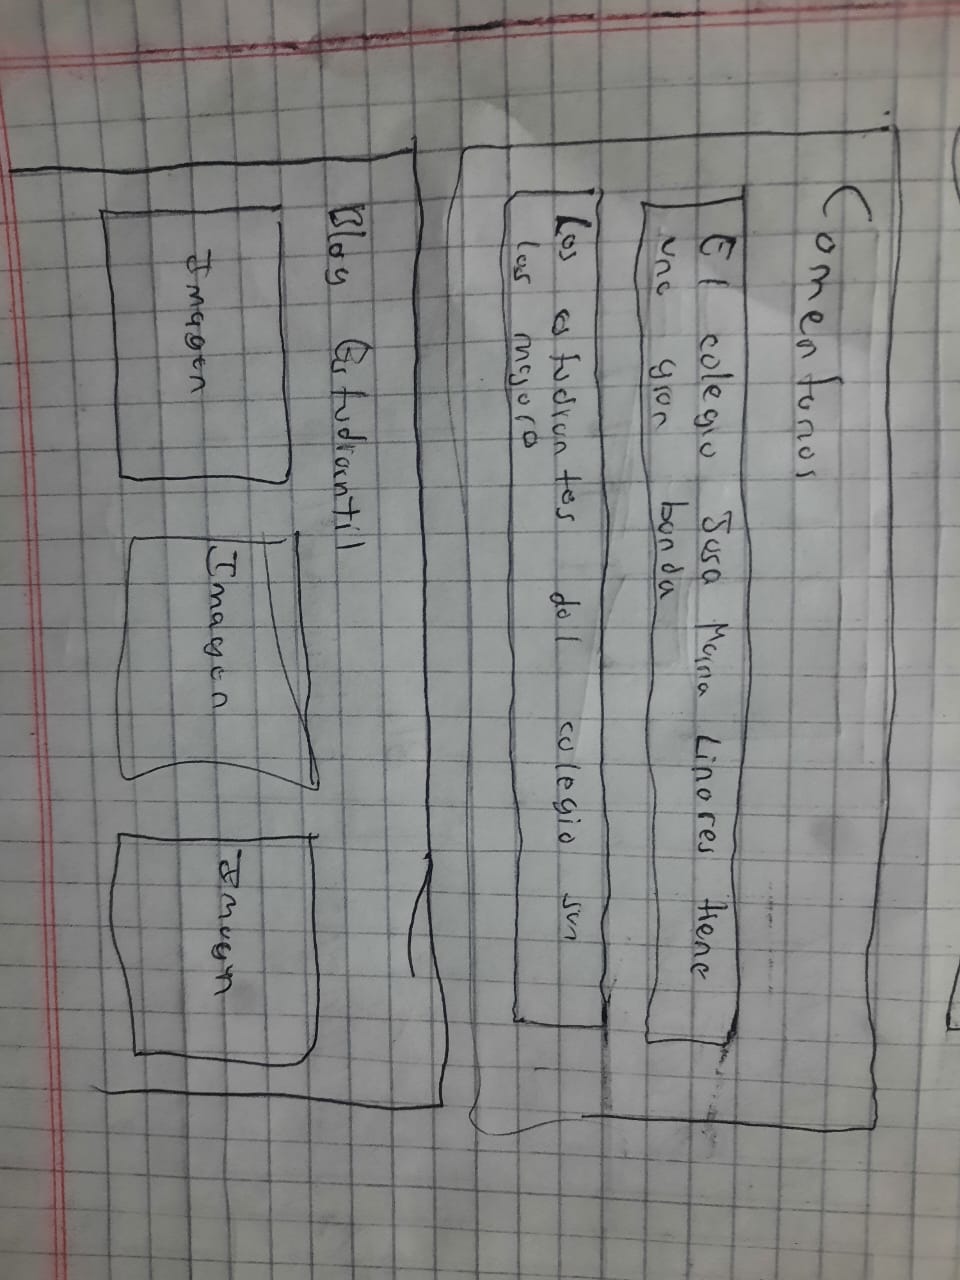 Comentarios
El colegio Jose Maria Linares tiene
una gran banda
Los estudiantes del colegio son
los mejore
Blog Estudiantil
Imagen
Imagen
Imagn